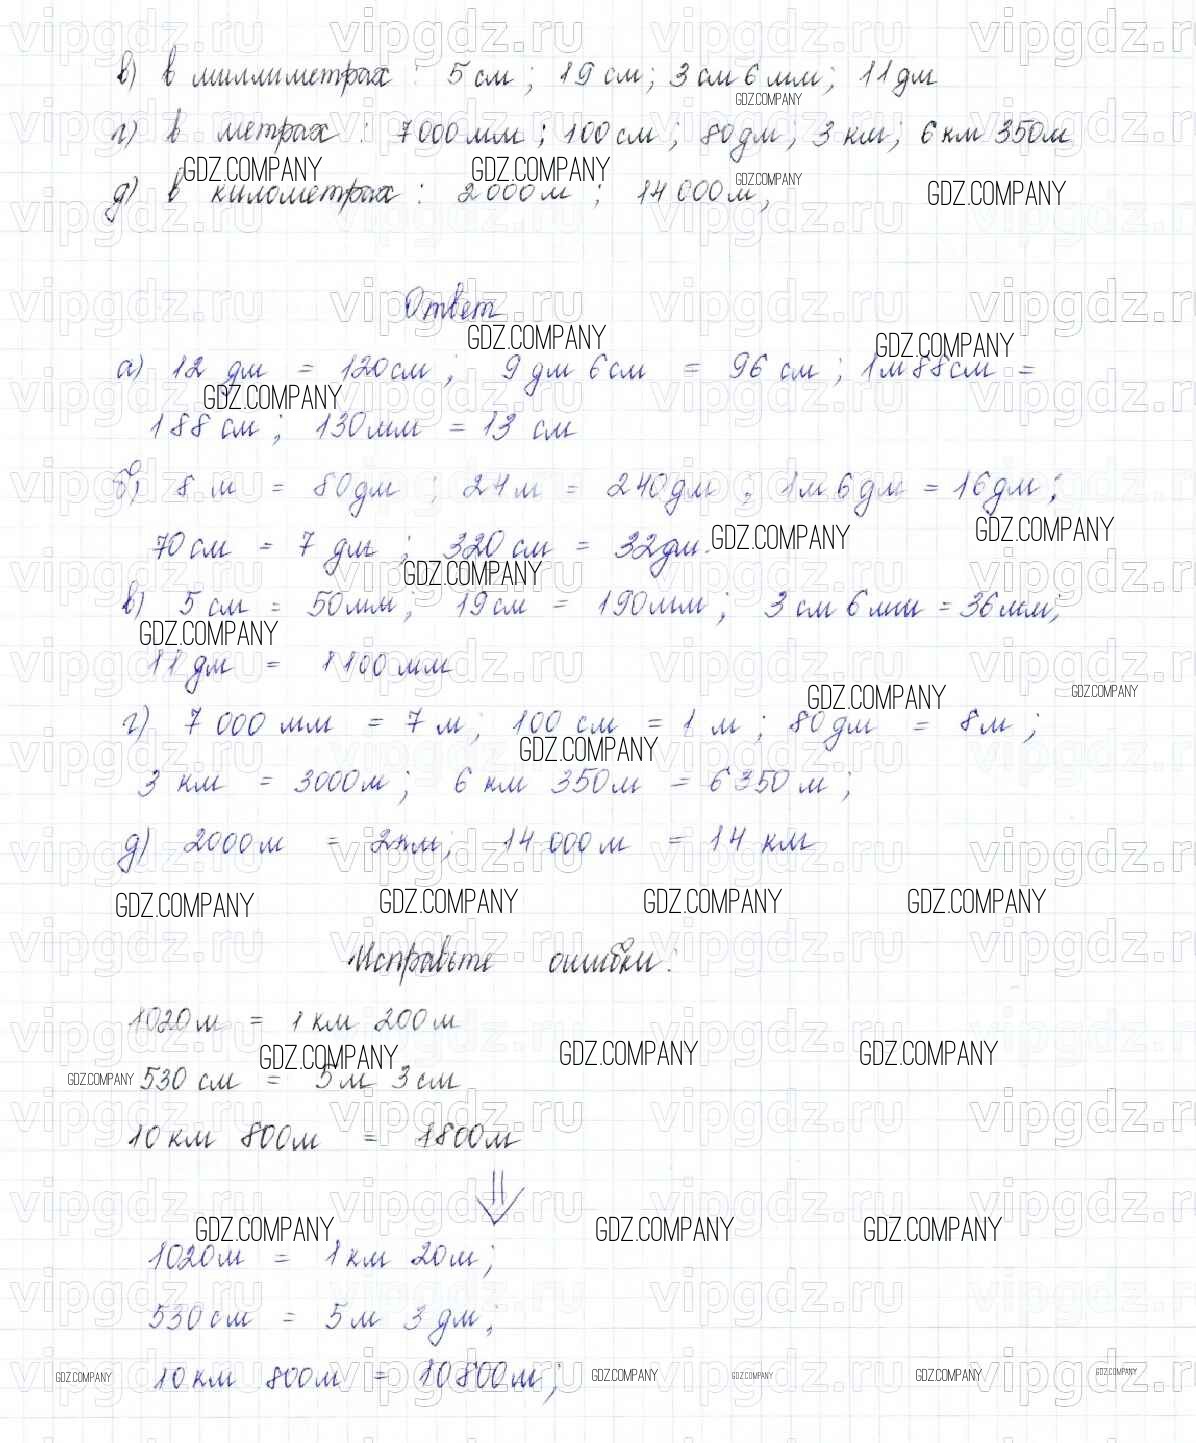 в) в миллиметрах : 5 см ; 19 см ; 3 см 6 мм ; 11 дм
г) в метрах : 7 000 мм ; 100 см ; 80 дм ; 3 км ; 6 км 350 м
д) в километрах : 2 000 м ; 14 000 м ,
Ответ
а) 12 дм = 120 см ; 9 дм 6 см = 96 см ; 1 м 88 см =
188 см ; 130 мм = 13 см
б) 8 м = 80 дм ; 24 м = 240 дм ; 1 м 6 дм = 16 дм ;
70 см = 7 дм ; 320 см = 32 дм.
в) 5 см = 50 мм ; 19 см = 190 мм ; 3 см 6 мм = 36 мм ;
11 дм = 1100 мм
г) 7 000 мм = 7 м ; 100 см = 1 м ; 80 дм = 8 м ;
3 км = 3000 м ; 6 км 350 м = 6350 м ;
д) 2000 м = 2 км ; 14 000 м = 14 км
Исправьте ошибки :
1020 м = 1 км 200 м
530 см = 5 м 3 см
10 км 800 м = 1800 м
⇓
1020 м = 1 км 20 м ;
530 см = 5 м 3 дм ;
10 км 800 м = 10 800 м ;
vipgdz.ru
GDZ.COMPANY